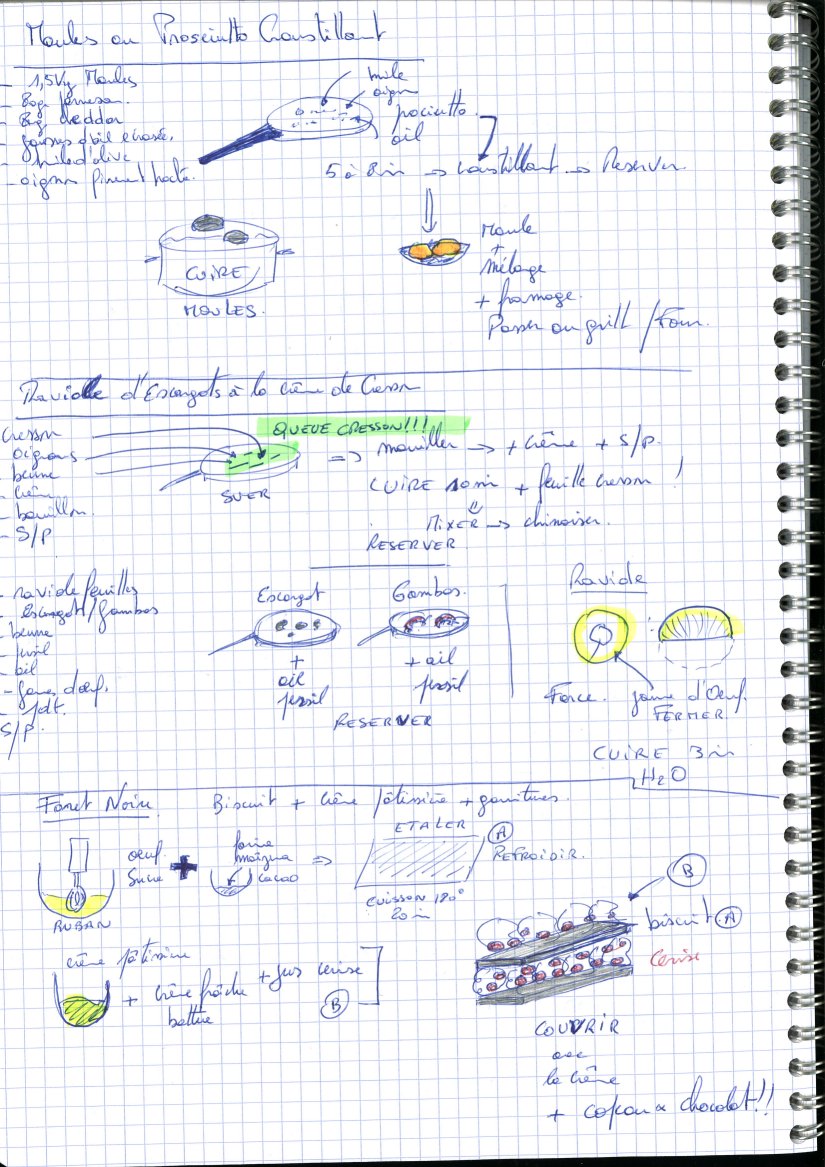 Moules au Prosciutto Croustillant
- 1,5Kg Moules
- 80g parmesan.
- 80g cheddar
- gousses d'ail écrasée.
- huile d'olive
- oignon piment haché.
huile
oignon
prociutto.
ail
5 à 8 min → croustillant → Reserver
CUIRE
MOULES.
Moule
+
mélange
+ fromage.
Passer au grill / Four.
Raviole d'Escargots à la Crème de Cresson
QUEUE CRESSON!!!
Cresson
oignons
beurre
- Crème
- bouillon.
- S/P
SUER
=> mouiller → + Crème + S/P.
CUIRE 10 min + feuille cresson !
MIXER → chinoiser.
RESERVER
- raviole feuilles
- Escargot/Gambas
- beurre
- persil
- ail
- jaunes d'oeuf.
- pdt.
S/P.
Escargot
+
ail
persil
Gambas.
+ ail
persil
RESERVER
Raviole
Farce.
jaune d'Oeuf.
FERMER.
CUIRE 3 min
H2O
Foret Noire.
Biscuit + Crème pâtissière + garnitures.
oeuf
Sucre
RUBAN
+
farine
maïzena
cacao
=>
ETALER
CUISSON 180°
20 min
A
REFROIDIR.
crème pâtissière
+ Crème fraîche
battue
+ jus cerise
B
B
biscuit A
Cerise
COUVRIR
avec
la Crème
+ copeaux chocolat!!